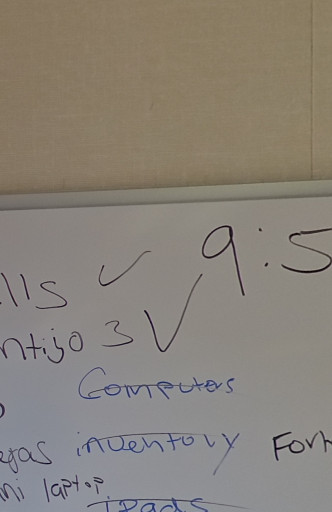 lls ✓ 9:5
ntijo 3 ✓
Computers
egas inventory Form
ni laptop
ipads